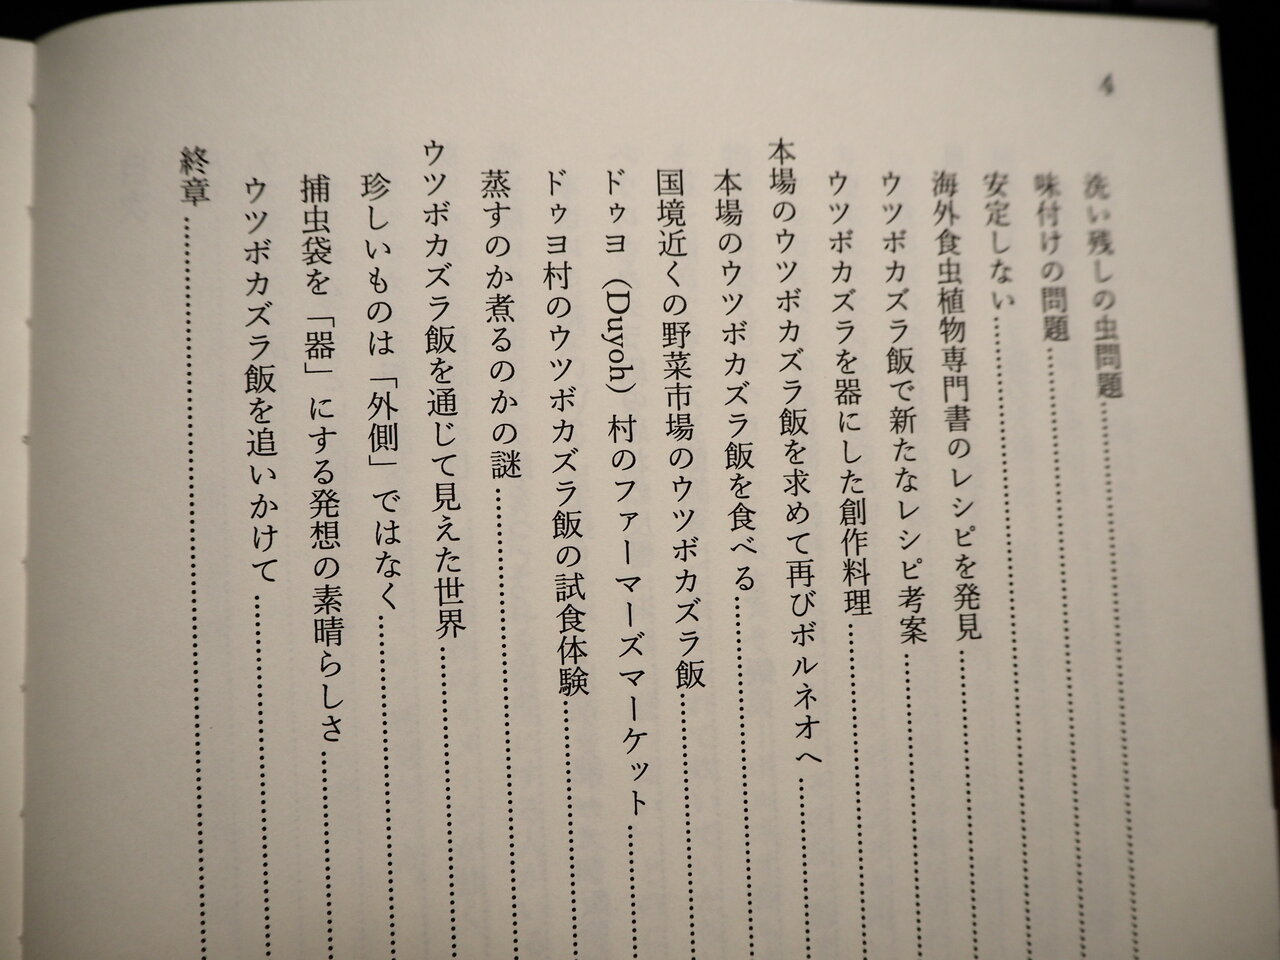 4
洗い残しの虫問題
味付けの問題
安定しない
海外食虫植物専門書のレシピを発見
ウツボカズラ飯で新たなレシピ考案
ウツボカズラを器にした創作料理
本場のウツボカズラ飯を求めて再びボルネオへ
本場のウツボカズラ飯を食べる
国境近くの野菜市場のウツボカズラ飯
ドゥヨ（Duyoh）村のファーマーズマーケット
ドゥヨ村のウツボカズラ飯の試食体験
蒸すのか煮るのかの謎
ウツボカズラ飯を通じて見えた世界
珍しいものは「外側」ではなく
捕虫袋を「器」にする発想の素晴らしさ
ウツボカズラ飯を追いかけて
終章